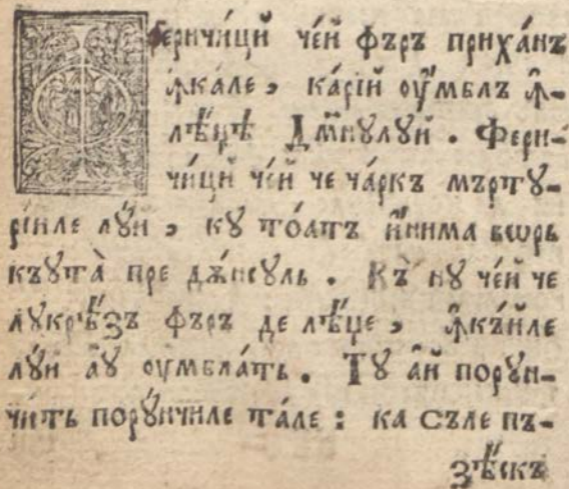 Феричи́цй че́й фъръ приха́нъ
ꙟ҆ка́ле, ка́рїй оу҆́мблъ ꙟ҆-
лѣ́џѣ Дм҃нꙋлꙋй. Фери-
чи́цй че́й че ча́ркъ мъртꙋ-
рі́иле лꙋ́й, кꙋ то́атъ и҆́нима вѡръ
къꙋта̀ пре дѫ́нсꙋль. Къ̀ нꙋ че́й че
лꙋкрѣ́зъ фъръ де лѣ́џе, ꙟ҆къ́иле
лꙋ́й аꙋ҆ оу҆мбла́ть. Тꙋ а҆́й порꙋн-
чи́ть порꙋ́нчиле та́ле: ка съле пъ-
зѣ́скъ